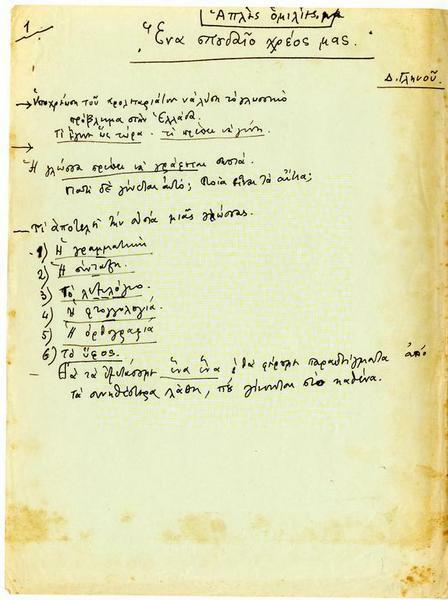 1
Ἁπλῆς ὁμιλίας
Ἕνα σπουδαῖο χρέος μας.
Δ. Γληνοῦ.
→ Ὑποχρέωση τοῦ προλεταριάτου νὰ λύση τὸ γλωσσικὸ
πρόβλημα στὴν Ἑλλάδα.
Τί ἔγινε ὥς τώρα. τί πρέπει νὰ γίνη.
→
Ἡ γλώσσα πρέπει νὰ γράφεται σωστά.
Γιατὶ δὲ γίνεται αὐτό; Ποιὰ εἶναι τὰ αἴτια;
— Τί ἀποτελεῖ τὴν οὐσία μιᾶς γλώσσας.
1) Ἡ γραμματική
2) Ἡ σύνταξη.
3) Τὸ λεξιλόγιο.
4) Ἡ φτογγολογιά.
5) Ἡ ὀρθογραφία
6) Τὸ ὕφος.
— Θὰ τὰ ἐξετάσομε ἕνα ἕνα θὰ φέρομε παραδείγματα ἀπὸ
τὰ συνηθέστερα λάθη, ποὺ γίνονται στὸ καθένα.